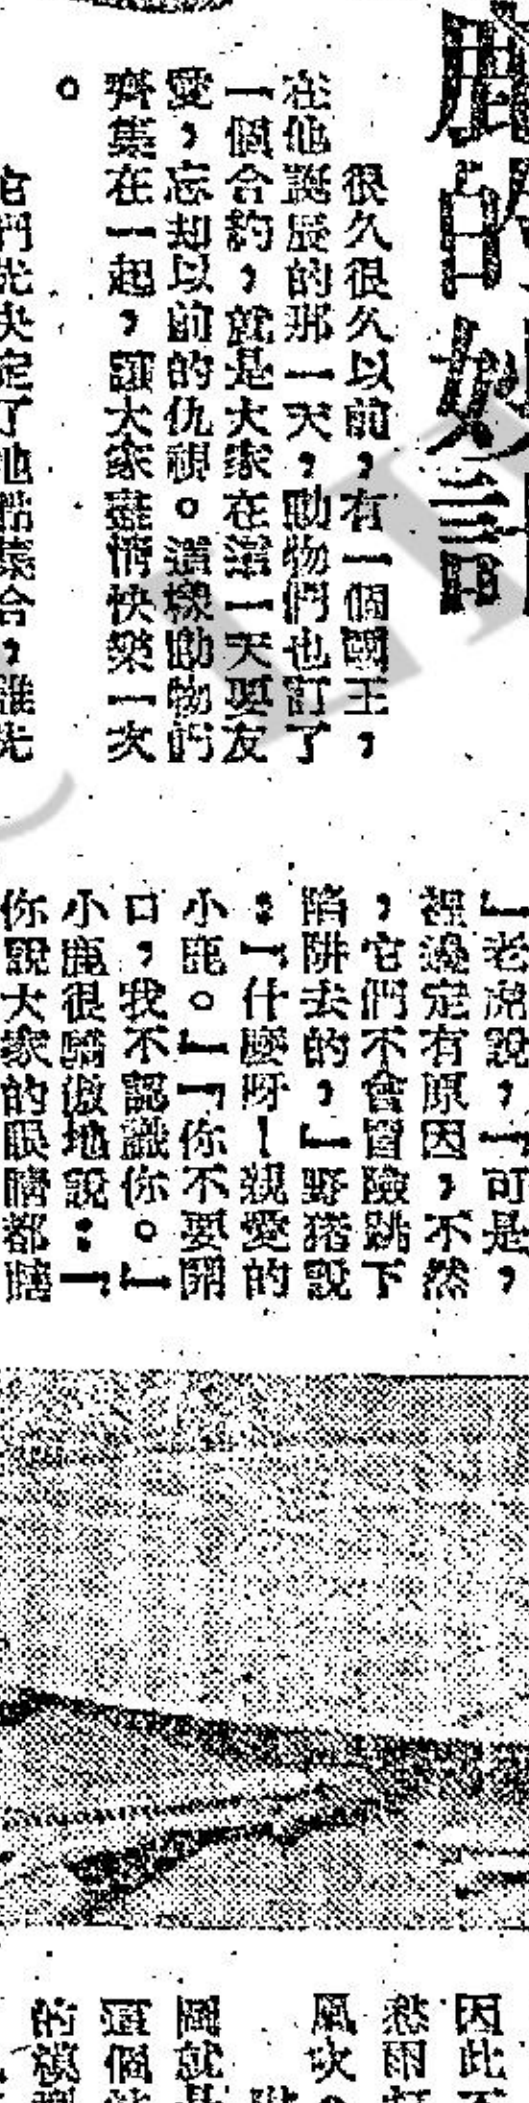 鹿的妙計
很久很久以前,有一個國王,
在他誕辰的那一天,動物們也訂了
一個合約,就是大家在這一天要友
愛,忘却以前的仇視。這樣動物們
齊集在一起,讓大家盡情快樂一次
。
它們先決定了地點集合,誰先
」老虎說,「可是,
裡邊定有原因,不然
,它們不會冒險跳下
陷阱去的,」野猪說
:「什麼呀!親愛的
小鹿。」「你不要開
口,我不認識你。」
小鹿很驕傲地說:「
你說大家的眼睛都瞎
因此
愁雨
風吹。
圖就是
這個
的模